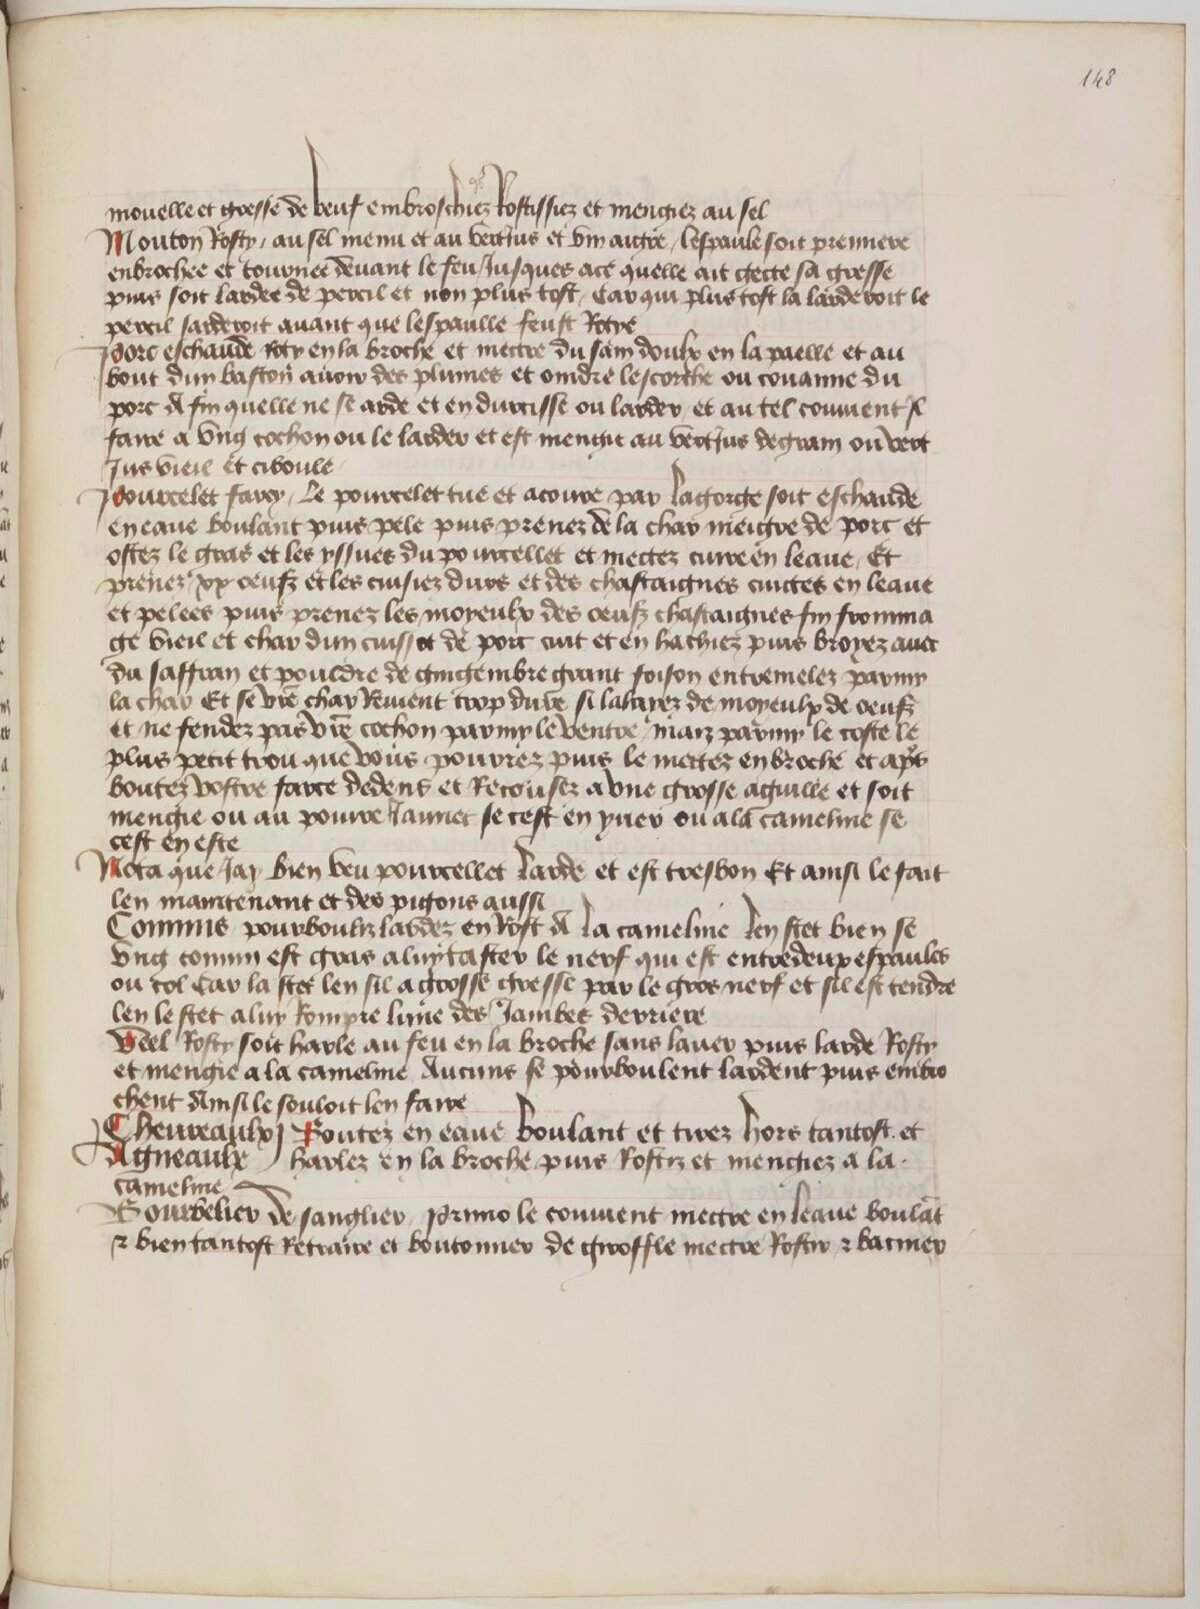 148
mouelle et gresse de beuf embrochiez Rostissiez et mengiez au sel
Mouton Rosty, au sel menu et au vertJus et vin aigre, lespaule soit premiere
enbrochee et tournee devant le feu Jusques ace quelle ait gecte sa gresse
puis soit lardee de percil et non plus tost, Car qui plus tost la larderoit le
percil sarderoit avant que lespaulle feust Rotie
Porc eschaude roty en la broche et mectre du sain doulx en la paelle et au
bout dun baston avoir des plumes et oindre lescorche ou couanne du
porc A fin quelle ne se arde et endurcisse ou larder, et autel convient Il
faire a Ung cochon ou le larder et est mengie au vertJus degrain ou vert
Jus vieil et ciboule
Pourcelet farcy, Le pourcelet tue et acoure par lagorge soit eschaude
en eaue boulant puis pele puis prenez de la char meigre de porc et
ostez le gras et les yssues du pourcellet et mectez cuire en leaue, Et
prenez xx oeufz et les cuisiez durs et des chastaignes cuictes en leaue
et pelees puis prenez les moyeulx des oeufz chastaignes fin fromma
ge vieil et char dun cuissot de porc cuit et en hachiez puis broyez avec
du saffran et pouldre de gingembre grant foison entremelez parmy
la char Et se vre char Revient trop dure si lalayez de moyeulx de oeufz
et ne fendez pas vre cochon parmy le ventre maiz parmy le coste le
plus petit trou que vous pourrez puis le mettez en broche et apres
boutez vostre farce dedens et Recousez a une grosse aguille et soit
mengie ou au poivre Jaunet se cest en yver ou ala cameline se
cest en este
Nota que Jay bien veu pourcellet larde et est tresbon Et ainsi le fait
len maintenant et des pigons aussi
Connins pourbouliz lardez en Rost A la cameline len scet bien se
Ung connin est gras aluy taster le nerf qui est entredeux espaules
ou col Car la scet len sil a grosse gresse par le gros nerf et sil est tendre
len le scet a luy Rompre lune des Jambes derriere
Veel Rosty soit harle au feu en la broche sans laver puis larde Rosty
et mengie a la cameline Aucuns se pourboulent lardent puis embro
chent Ainsi le souloit len faire
Chevreaulx } Boutez en eaue boulant et tirez hors tantost et
Agneaulx } harlez en la broche puis Rostiz et mengiez a la
cameline
Bourbelier de sanglier, Primo le convient mectre en leaue boulāt
⁊ bien tantost Retraire et boutonner de giroffle mectre Rostir ⁊ baciner